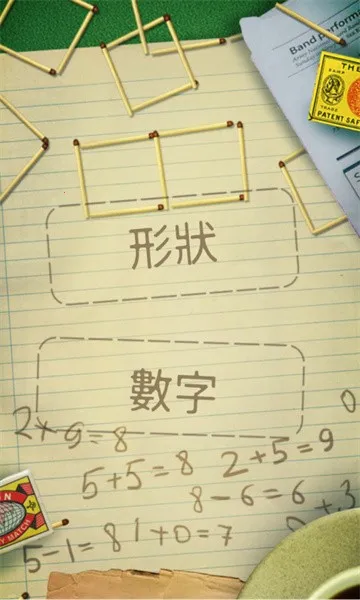 Band perform
THE
PATENT SAF
形狀
數字
2+9=8
5+5=8
2+5=9
8-6=6
5-1=8
1+0=7